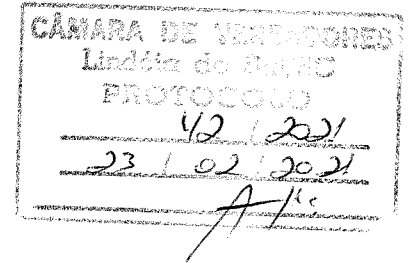 CÂMARA DE VEREADORES
Lindóia do Sul/SC
PROTOCOLO
42 / 2021
23 / 02 / 2021